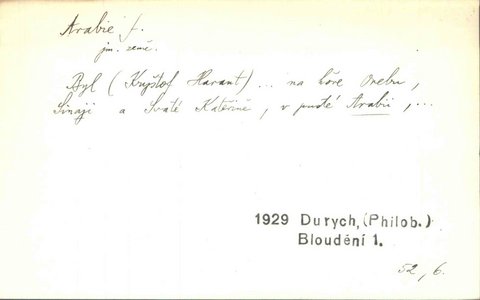 Arabie f.
jm. země.
Byl (Kryštof Harant) ... na hoře Orebu,
Sinaji a Svaté Kateřině, v pusté Arabii, ...
1929 Durych, (Philob.)
Bloudění 1.
52, 6.